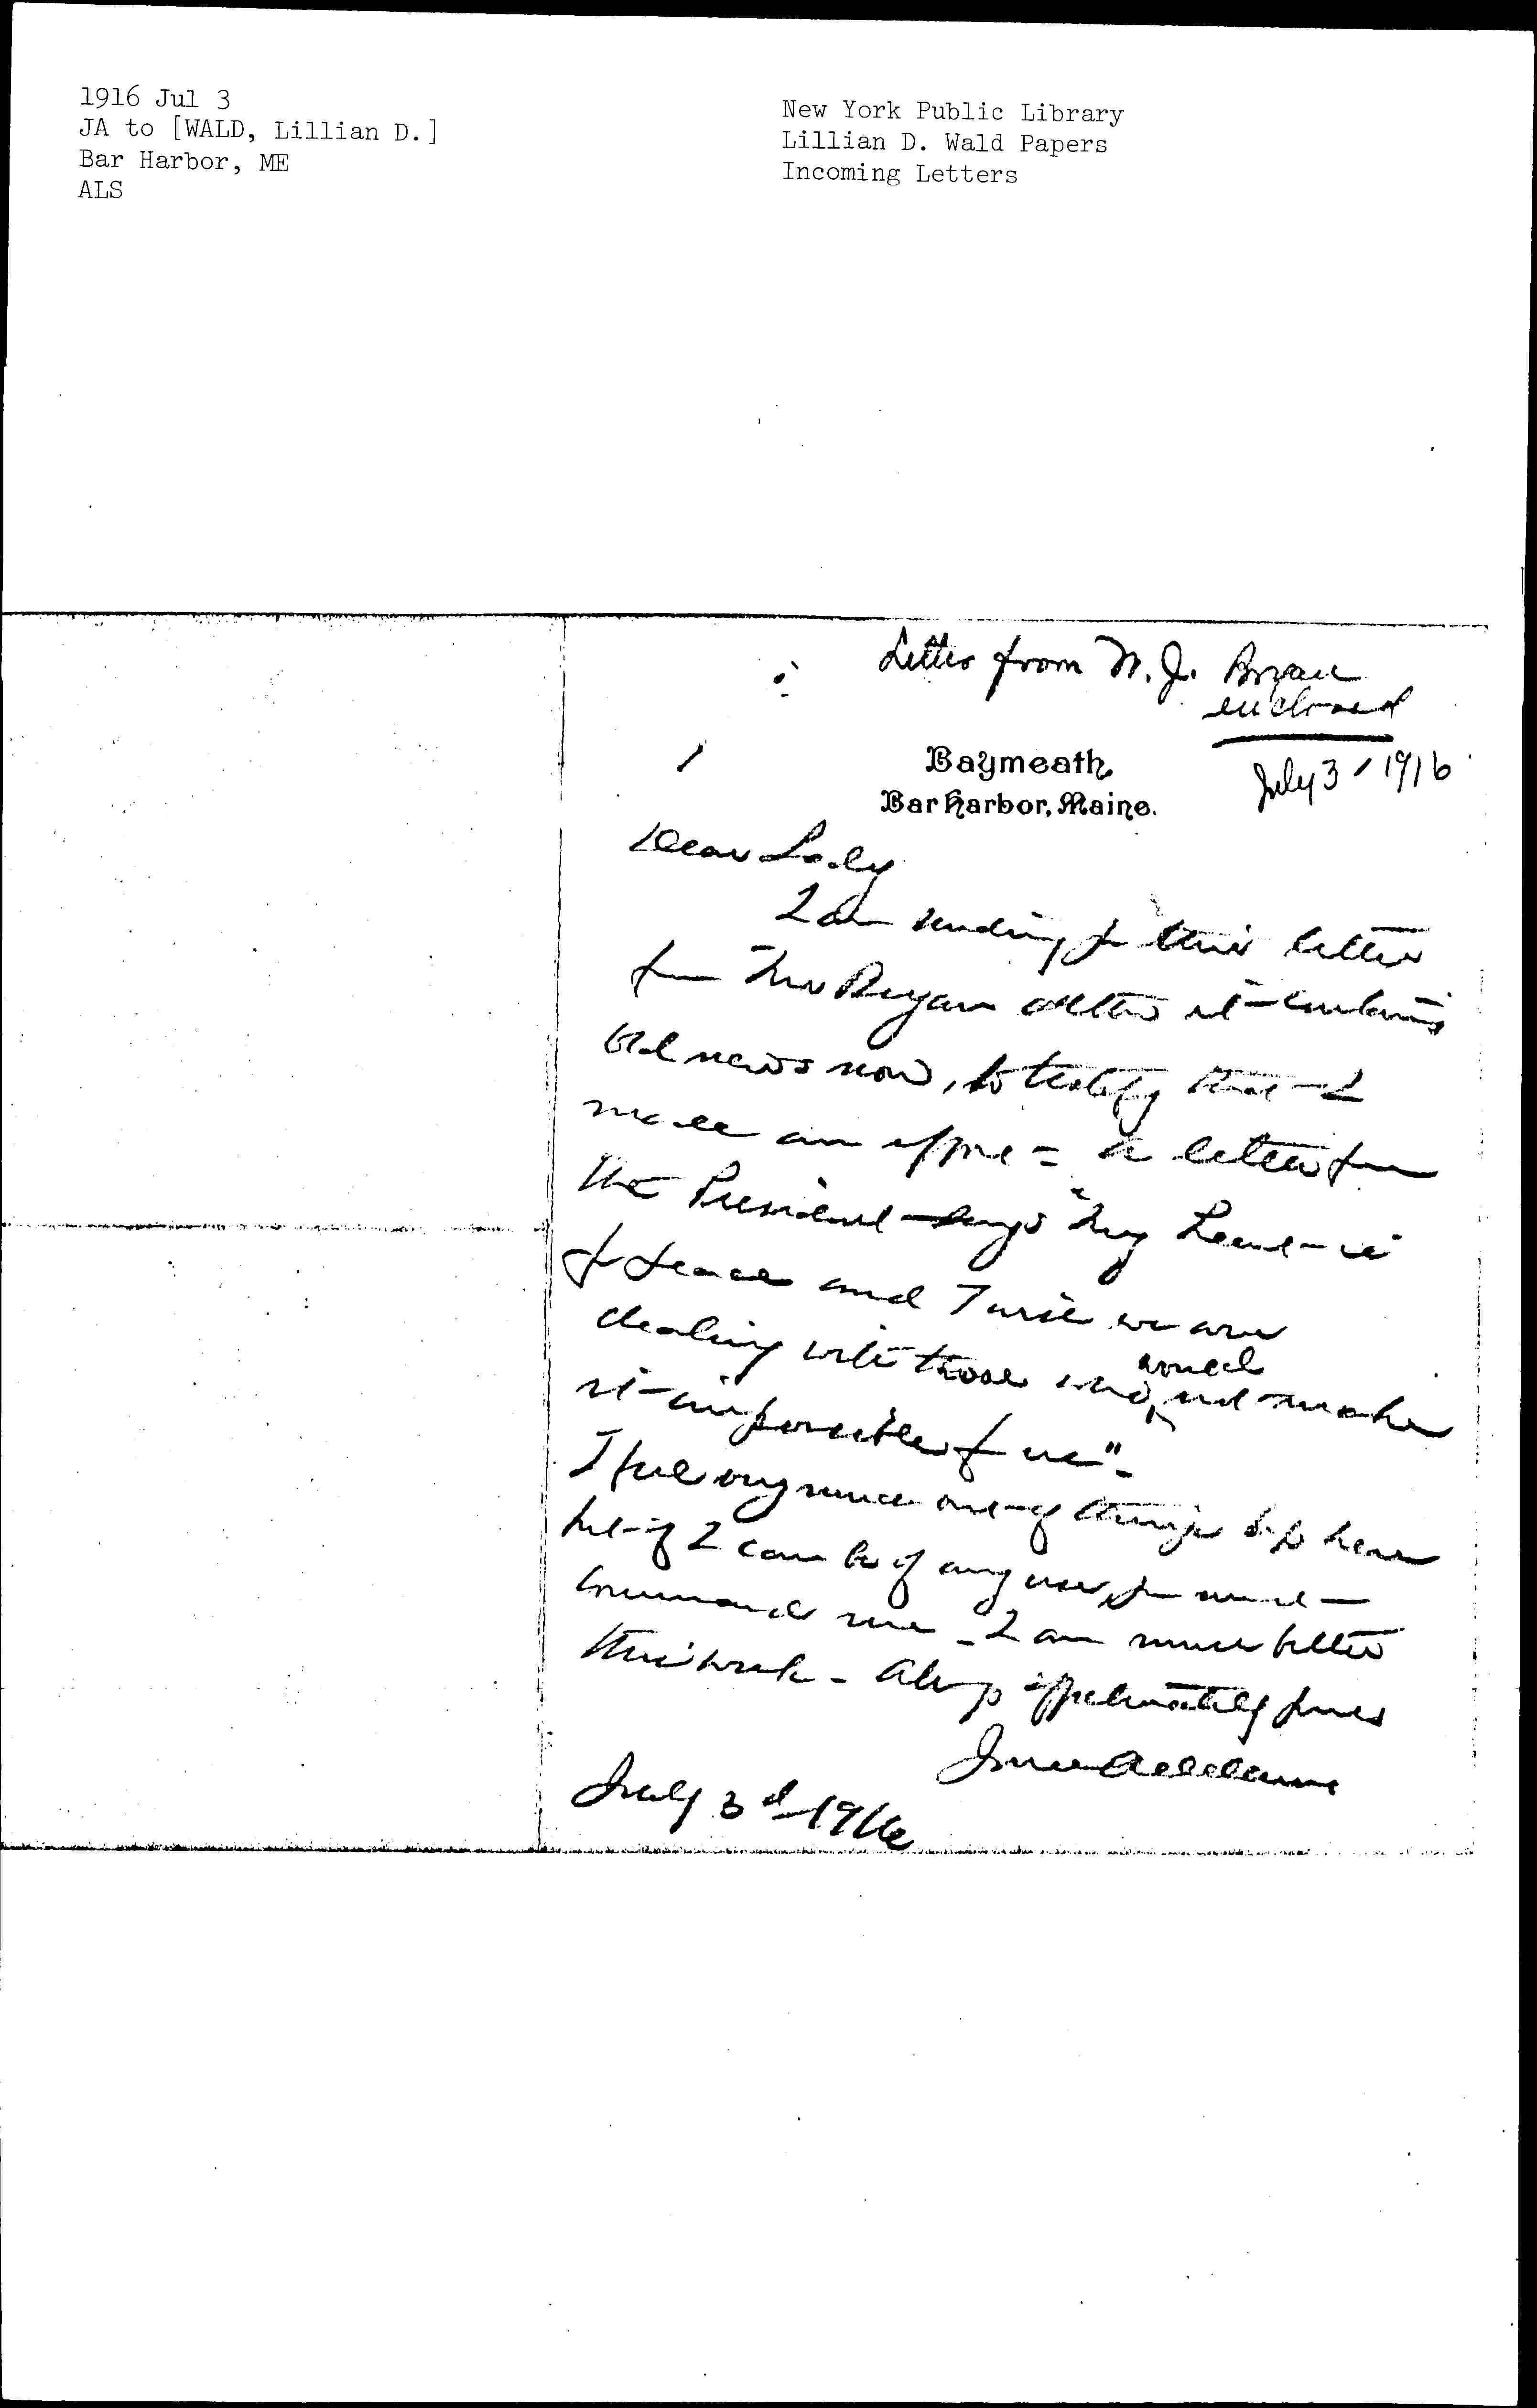 1916 Jul 3
JA to [WALD, Lillian D.]
Bar Harbor, ME
ALS
New York Public Library
Lillian D. Wald Papers
Incoming Letters
Letter from W. J. Bryan
enclosed
Baymeath,
Bar Harbor, Maine.
July 3 / 1916
Dear Lady
I am sending you this letter
from Mr Bryan altho it contains
old news now, to testify that I
made an effort = a letter from
the President says "My heart is
for peace and I wish we were
dealing with those who would not make
it impossible for us"-
I feel very much out of things up here
but if I can be of any use, you must
command me - I am much better
this week - Always affectionately yours
Jane Addams
July 3d 1916